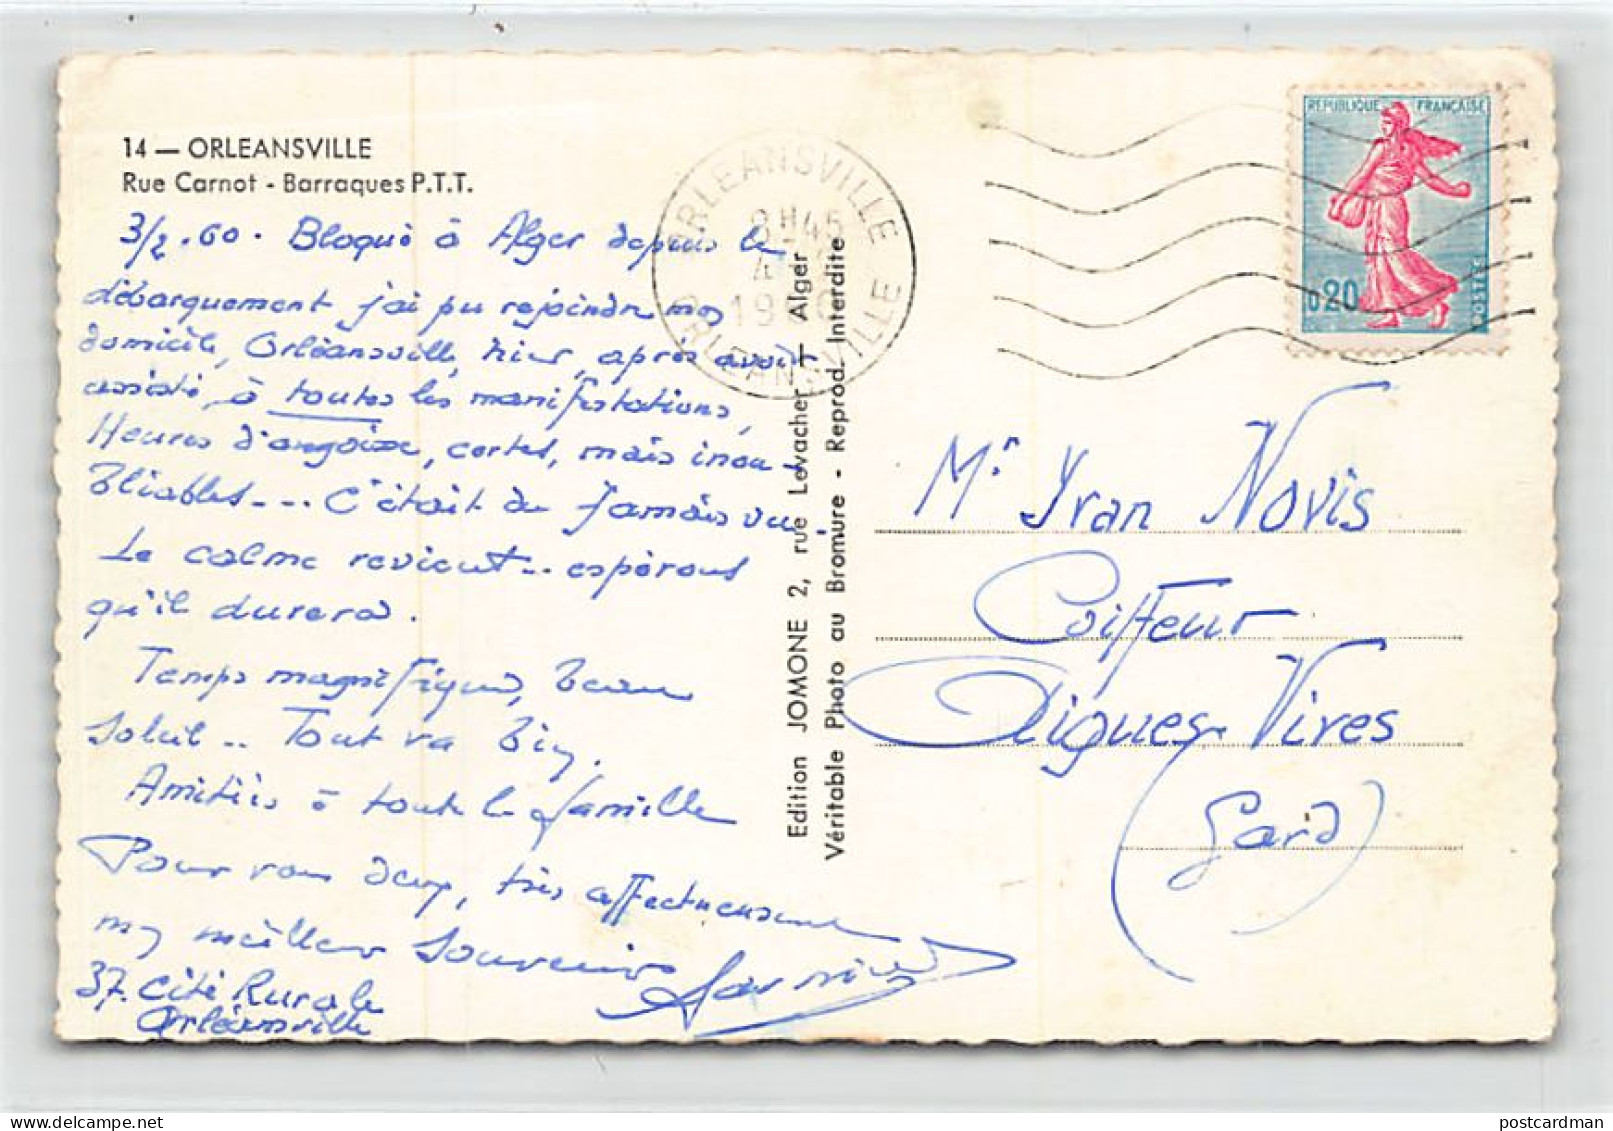 14 — ORLEANSVILLE
Rue Carnot - Barraques P.T.T.
3/2.60. Bloqué à Alger depuis le
débarquement j'ai pu rejoindre mon
domicile, Orléansville, hier, après avoir
assisté, à toutes les manifestations,
Heures d'angoisse, certes, mais inou-
bliables --- C'était du jamais vu.
Le calme revient... espérons
qu'il durera.
Temps magnifique, beau
soleil .. Tout va bien.
Amitiés à toute la famille
Pour vous deux, très affectueusement
mon meilleur souvenir
37. Cité Rurale
Orléansville
Edition JOMONE 2, rue Levacher — Alger
Véritable Photo au Bromure - Reprod. Interdite
ORLEANSVILLE
8H45
4
1960
ORLEANSVILLE
REPUBLIQUE FRANÇAISE
0,20
POSTES
Mr Yvan Novis
Coiffeur
Aigues-Vives
(Gard)
postcardman